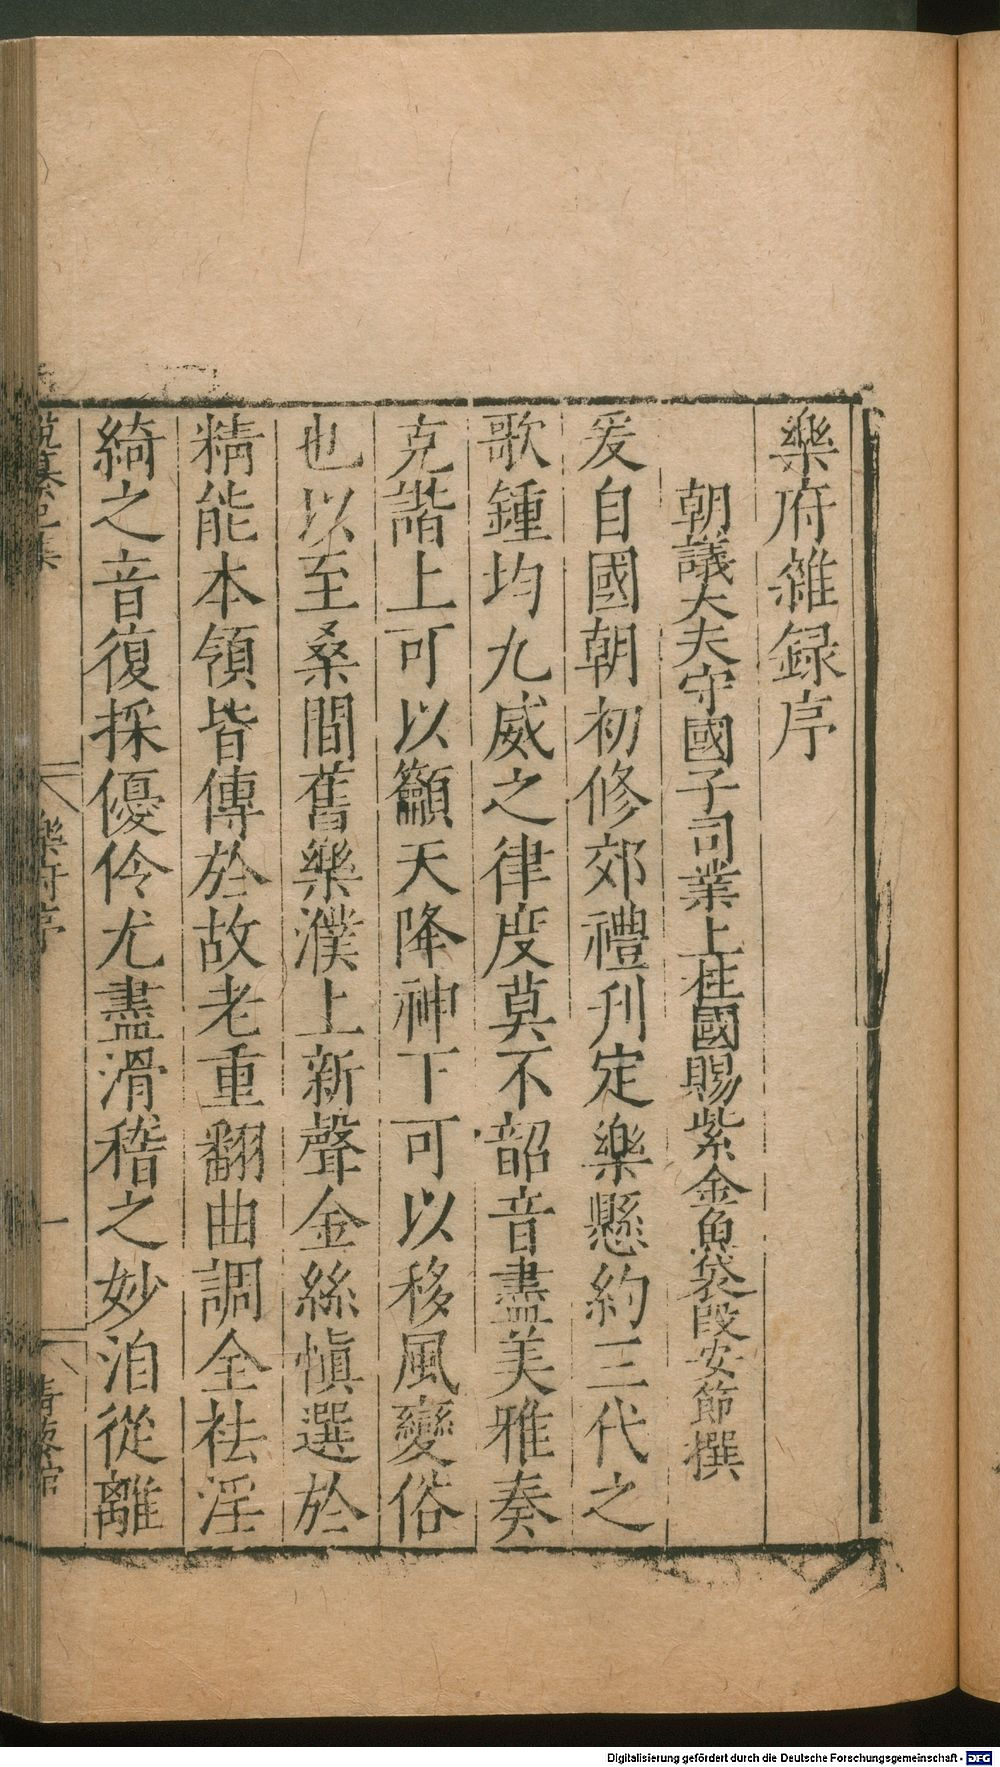 樂府雜録序
朝議大夫守國子司業上柱國賜紫金魚袋段安節撰
爰自國朝初修郊禮刋定樂懸約三代之
歌鍾均九威之律度莫不韶音盡美雅奏
克諧上可以籲天降神下可以移風變俗
也以至桑間舊樂濮上新聲金絲愼選於
精能本領皆傳於故老重翻曲調全祛淫
綺之音復採優伶尤盡滑稽之妙洎從離
樂府序
一
Digitalisierung gefördert durch die Deutsche Forschungsgemeinschaft - DFG